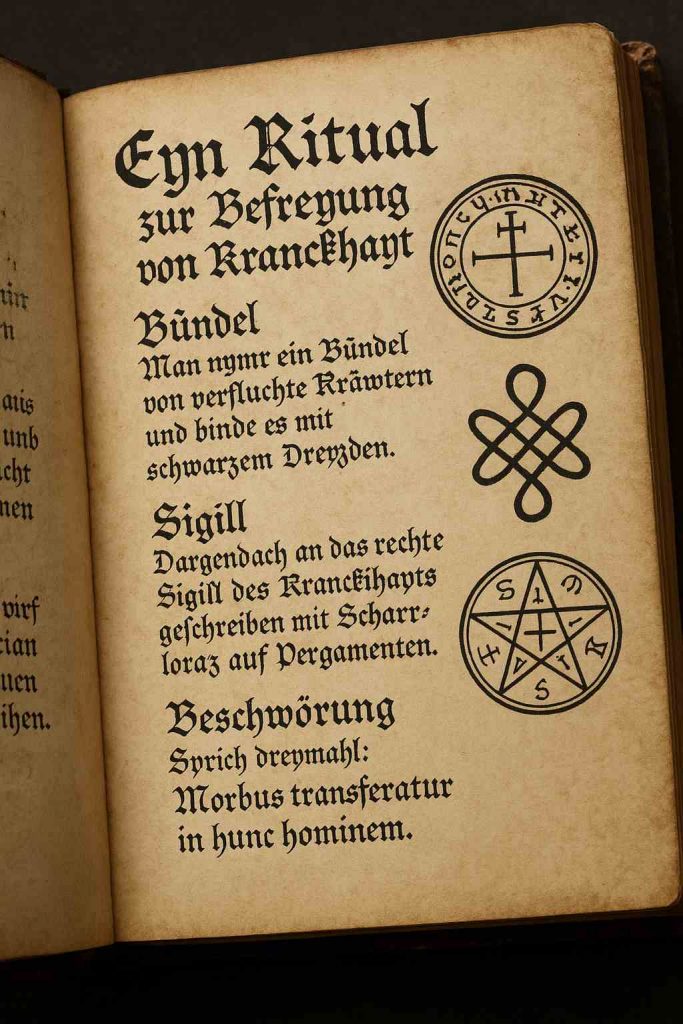 aus
unb
cht
nen
virf
cian
uen
ihen.
Eyn Ritual
zur Befreyung
von Kranckhayt
Bündel
Man nymr ein Bündel
von verfluchte Kräwtern
und binde es mit
schwarzem Dreyzden.
Sigill
Dargendach an das rechte
Sigill des Kranckihayts
geschreiben mit Scharr⸗
loraz auf Pergamenten.
Beschwörung
Syrich dreymahl:
Morbus transferatur
in hunc hominem.